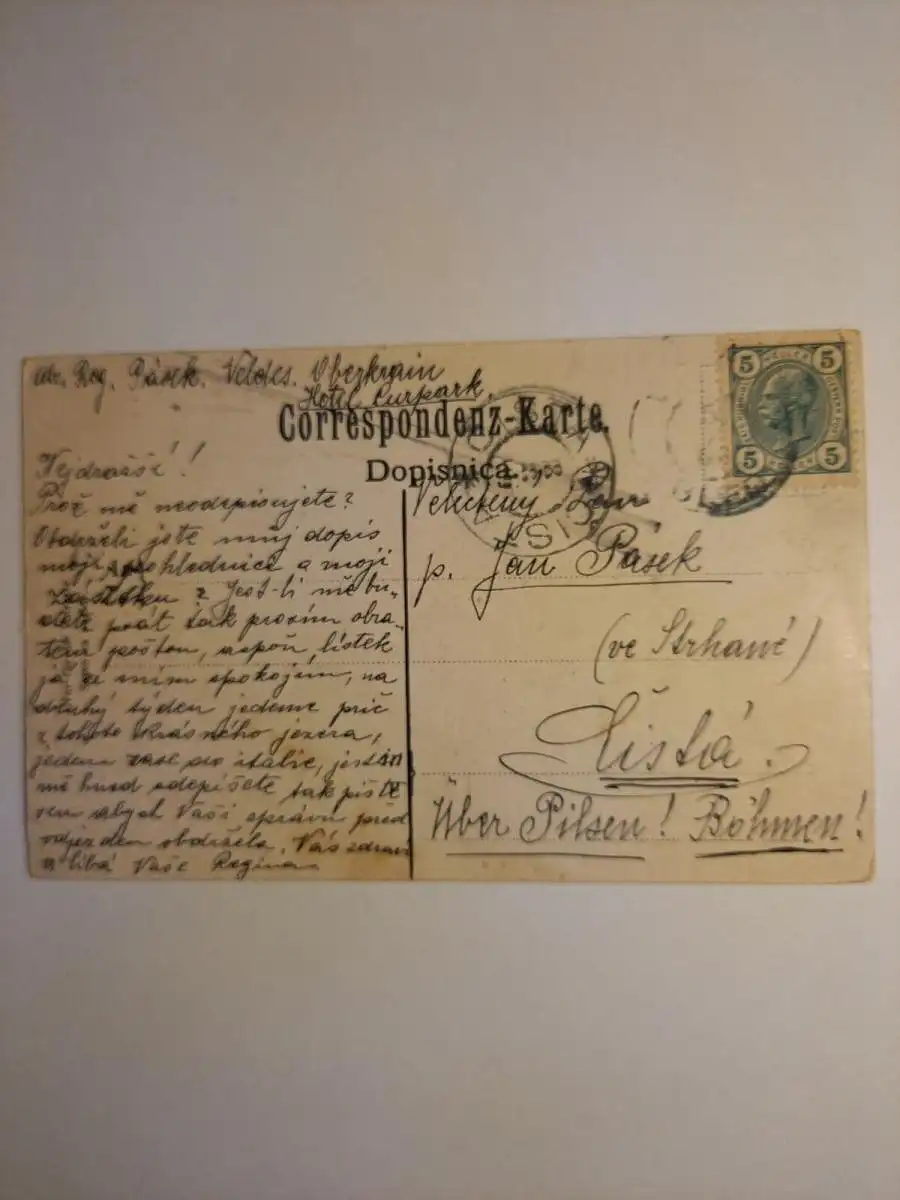 adr. Reg. Pásek. Veldes. Oberkrain
Hotel Curpark.
Correspondenz-Karte.
Dopisnica.
Nejdražší!
Proč mě neodepisujete?
Obdrželi jste můj dopis
moji pohlednici a moji
Jest-li mě bu-
dete psát tak prosím obra-
tem poštou, aspoň lístek
já se s ním spokojím, na
druhý týden jedeme prič
z tohoto krásného jezera,
jedem zase do italie, jestli
mě hned odepíšete tak pište
sem abych Vaši správu před
odjezdem obdržela. Vás zdraví
a líbá Vaše Regina
Velectěný Pan
p. Jan Pásek
(ve Strhané)
Čistá.
Über Pilsen! Böhmen!
5 HELLER 5
5 5